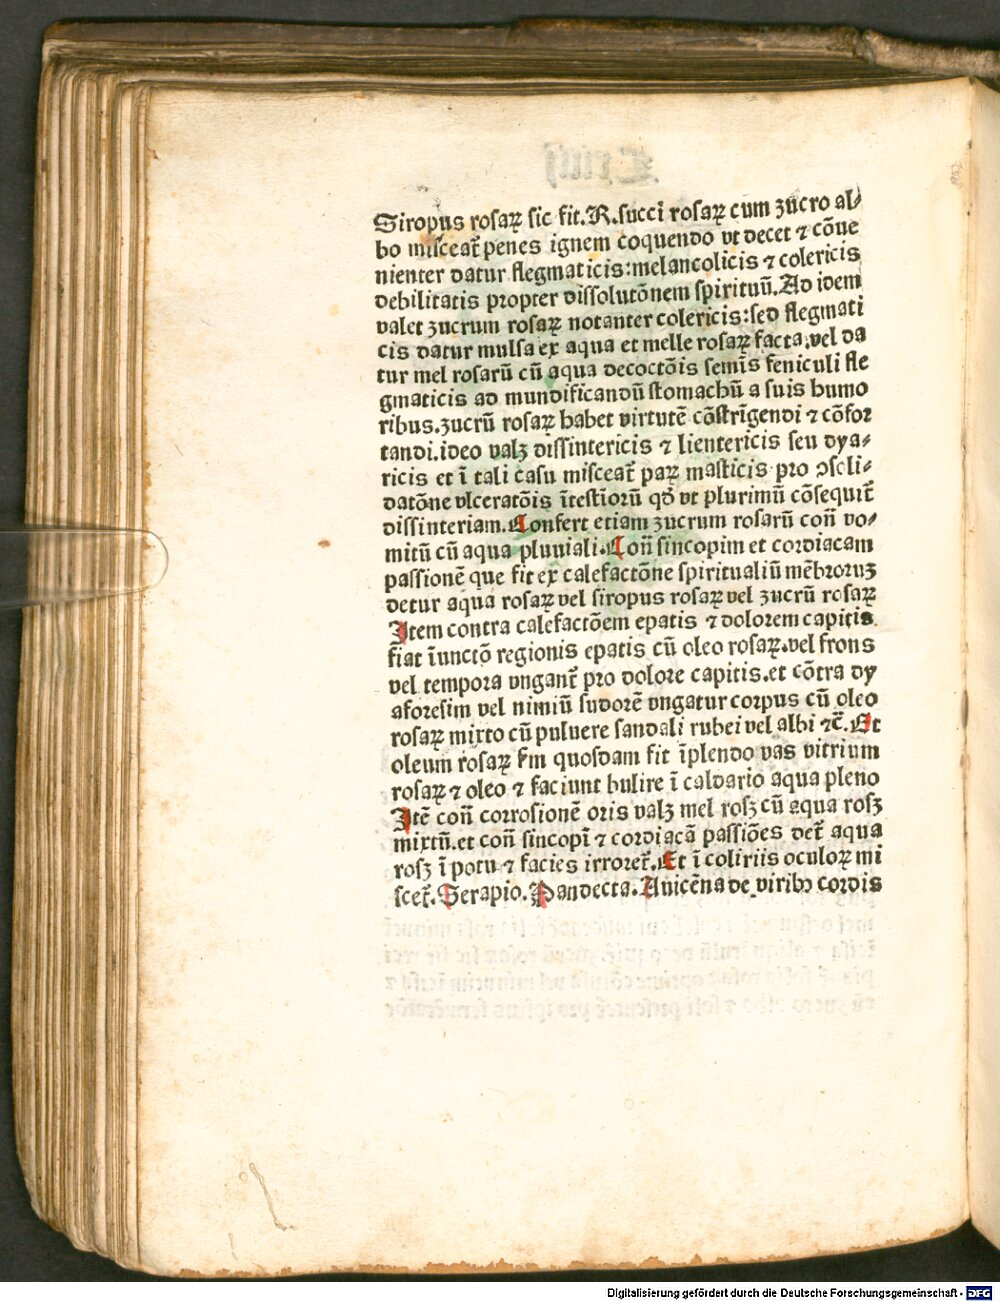 Siropus rosaꝝ sic fit. R. succi rosaꝝ cum zucro al⸗
bo misceat᷑ penes ignem coquendo vt decet ⁊ cōue
nienter datur flegmaticis: melancolicis ⁊ colericis
debilitatis propter dissolutōnem spirituū. Ad idem
valet zucrum rosaꝝ notanter colericis: sed flegmati
cis datur mulsa ex aqua et melle rosaꝝ facta. vel da
tur mel rosarū cū aqua decoctōis semīs feniculi fle
gmaticis ad mundificandū stomachū a suis humo
ribus. zucrū rosaꝝ habet virtutē cōstrīgendi ⁊ cōfor
tandi. ideo valꝫ dissintericis ⁊ lientericis seu dya⸗
ricis et ī tali casu misceat᷑ paꝝ masticis pro ↄsoli⸗
datōne vlceratōis ītestīorū qd̄ vt plurimū cōsequit᷑
dissinteriam. Confert etiam zucrum rosarū con̄ vo⸗
mitū cū aqua pluuiali. Con̄ sincopim et cordiacam
passionē que fit ex calefactōne spiritualiū mēbroruꝫ
detur aqua rosaꝝ vel siropus rosaꝝ vel zucrū rosaꝝ
Item contra calefactōem epatis ⁊ dolorem capitis
fiat īunctō regionis epatis cū oleo rosaꝝ. vel frons
vel tempora vngant᷑ pro dolore capitis. et cōtra dy
aforesim vel nimiū sudorē vngatur corpus cū oleo
rosaꝝ mixto cū puluere sandali rubei vel albi ⁊c̄. Et
oleum rosaꝝ ẜm quosdam fit īplendo vas vitrium
rosaꝝ ⁊ oleo ⁊ faciunt bulire ī caldario aqua pleno
Itē con̄ corrosionē oris valꝫ mel rosꝫ cū aqua rosꝫ
mixtū. et con̄ sincopī ⁊ cordiacā passiōes det᷑ aqua
rosꝫ ī potu ⁊ facies irroret᷑. Et ī coliriis oculoꝝ mi
scet᷑. Serapio. Pandecta. Auicēna de viribꝫ cordis
Digitalisierung gefördert durch die Deutsche Forschungsgemeinschaft - DFG